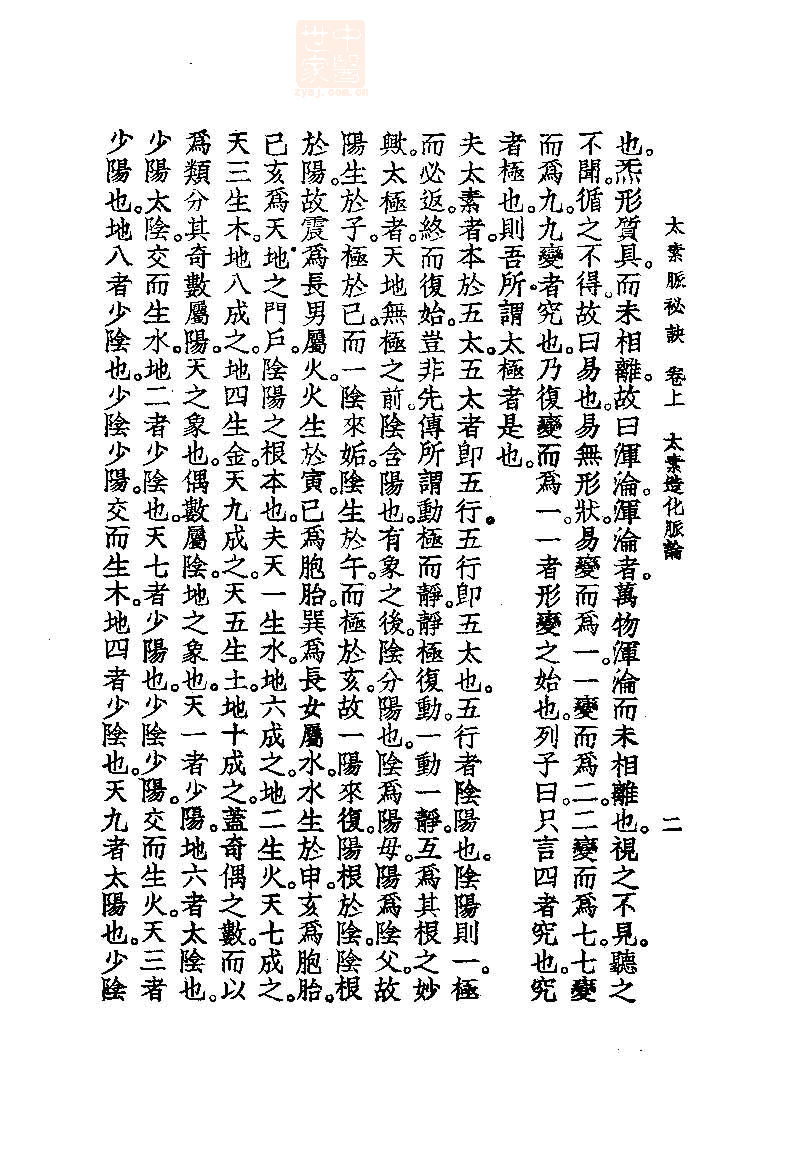 中醫世家
zysj.com.cn
太素脈祕訣 卷上 太素造化脈論 二
也。炁形質具。而未相離。故曰渾淪。渾淪者。萬物渾淪而未相離也。視之不見。聽之
不聞。循之不得。故曰易也。易無形狀。易變而爲一。一變而爲二。二變而爲七。七變
而爲九。九變者究也。乃復變而爲一。一者形變之始也。列子曰。只言四者究也。究
者極也。則吾所謂太極者是也。
夫太素者。本於五太。五太者卽五行。五行卽五太也。五行者陰陽也。陰陽則一。極
而必返。終而復始。豈非先傳所謂動極而靜。靜極復動。一動一靜。互爲其根之妙
歟。太極者。天地無極之前。陰含陽也。有象之後。陰分陽也。陰爲陽母。陽爲陰父。故
陽生於子。極於巳。而一陰來姤。陰生於午。而極於亥。故一陽來復。陽根於陰。陰根
於陽。故震爲長男。屬火。火生於寅。巳爲胞胎。巽爲長女屬水。水生於申。亥爲胞胎。
巳亥爲天地之門戶。陰陽之根本也。夫天一生水。地六成之。地二生火。天七成之。
天三生木。地八成之。地四生金。天九成之。天五生土。地十成之。蓋奇偶之數。而以
爲類分。其奇數屬陽。天之象也。偶數屬陰。地之象也。天一者少陽。地六者太陰也。
少陽太陰。交而生水。地二者少陰也。天七者少陽也。少陰少陽。交而生火。天三者
少陽也。地八者少陰也。少陰少陽。交而生木。地四者少陰也。天九者太陽也。少陰